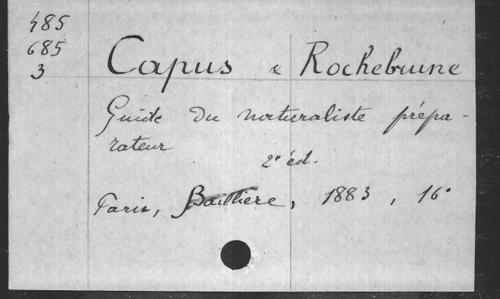 485
685
3
Capus & Rochebrune
Guide du naturaliste prépa-
rateur
2e éd.
Paris, Baillière, 1883, 16°